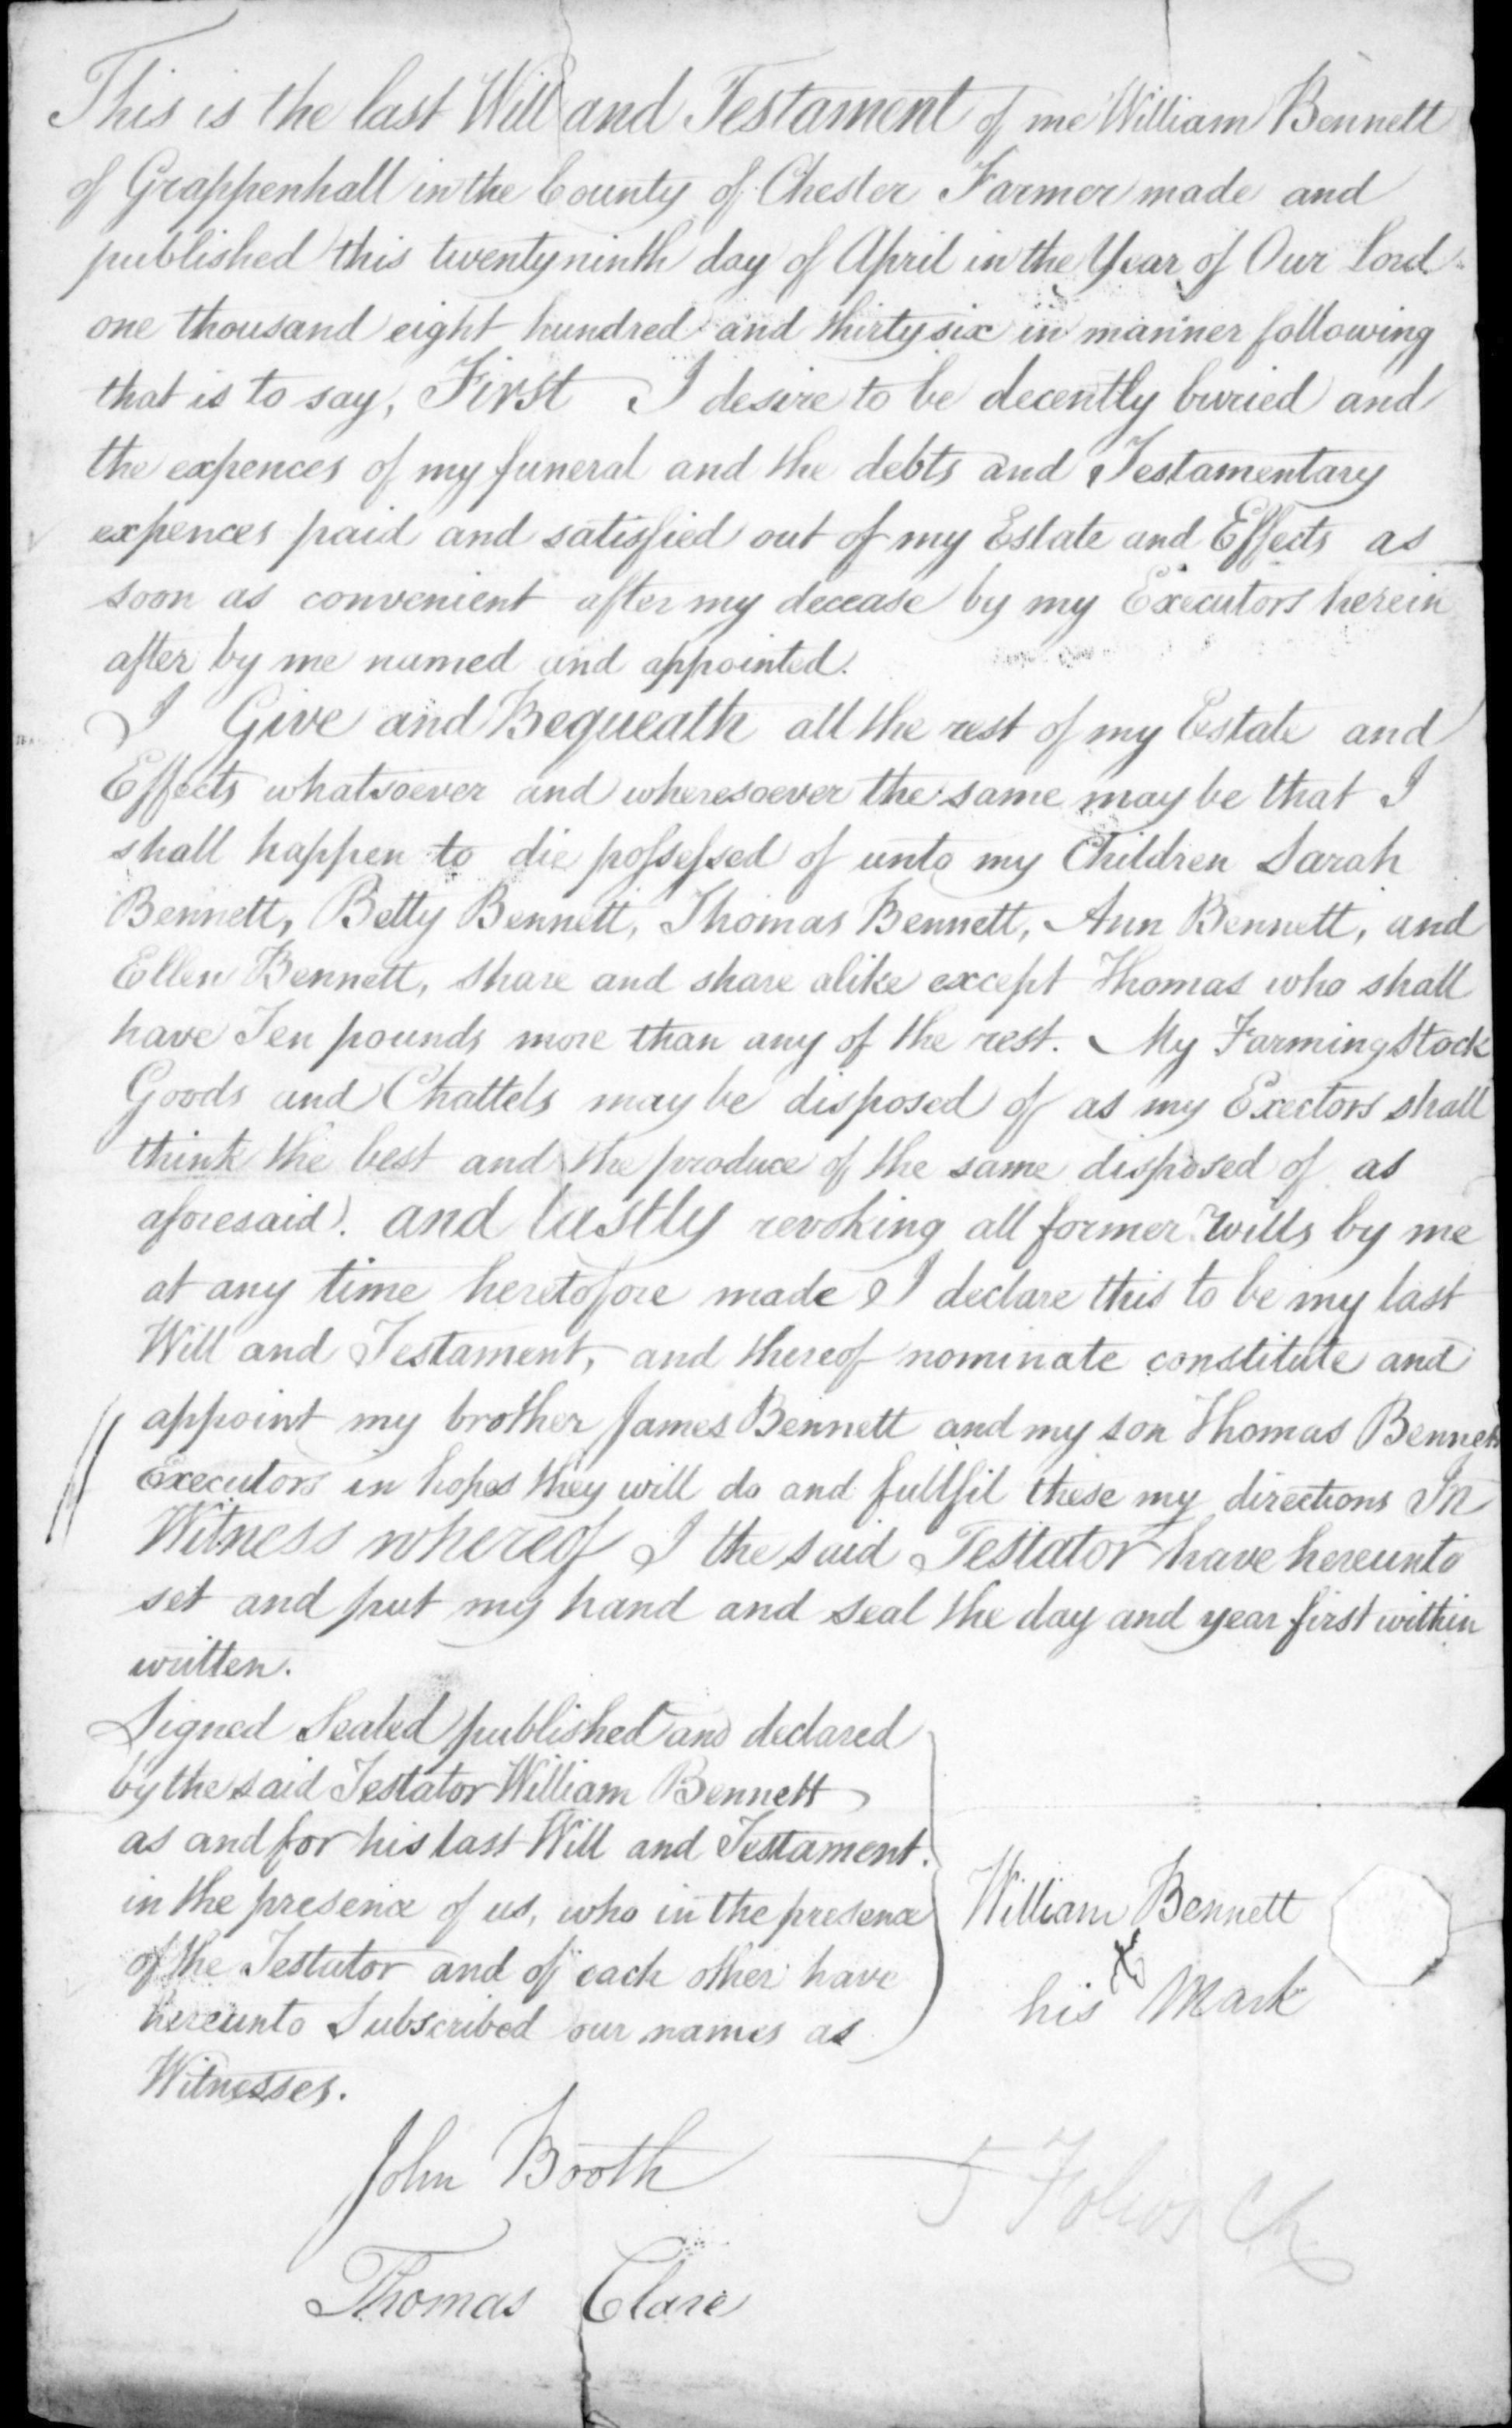 This is the last Will and Testament of me William Bennett
of Grappenhall in the County of Chester Farmer made and
published this twentyninth day of April in the Year of Our Lord
one thousand eight hundred and thirtysix in manner following
that is to say, First I desire to be decently buried and
the expences of my funeral and the debts and Testamentary
expences paid and satisfied out of my Estate and Effects as
soon as convenient after my decease by my Executors herein
after by me named and appointed.
I Give and Bequeath all the rest of my Estate and
Effects whatsoever and wheresoever the same may be that I
shall happen to die possessed of unto my Children Sarah
Bennett, Betty Bennett, Thomas Bennett, Ann Bennett, and
Ellen Bennett, share and share alike except Thomas who shall
have Ten pounds more than any of the rest. My Farming Stock
Goods and Chattels may be disposed of as my Exectors shall
think the best and the produce of the same disposed of as
aforesaid. and lastly revoking all former wills by me
at any time heretofore made I declare this to be my last
Will and Testament, and thereof nominate constitute and
appoint my brother James Bennett and my son Thomas Bennett
Executors in hopes they will do and fullfil these my directions In
Witness whereof I the said Testator have hereunto
set and put my hand and seal the day and year first within
written.
Signed Sealed published and declared
by the said Testator William Bennett
as and for his last Will and Testament.
in the presence of us, who in the presence
of the Testator and of each other have
hereunto Subscribed our names as
Witnesses.
William Bennett
X
his Mark
John Booth
Thomas Clare
5 Folios